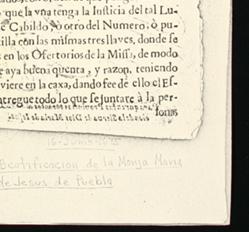 que la vna tenga la Iusticia del tal Lu-
e Cabildo, No otro del Numero, ò pu-
cilla con las mismas tres llaves, donde se
en los Ofertorios de la Missa, de modo
e aya buena quenta, y razon, teniendo
viere en la caxa, dando fee de ello el Es-
ntregue todo lo que se juntare à la per-
sona
Beatificacion de la Monja Maria
de Jesus de Puebla